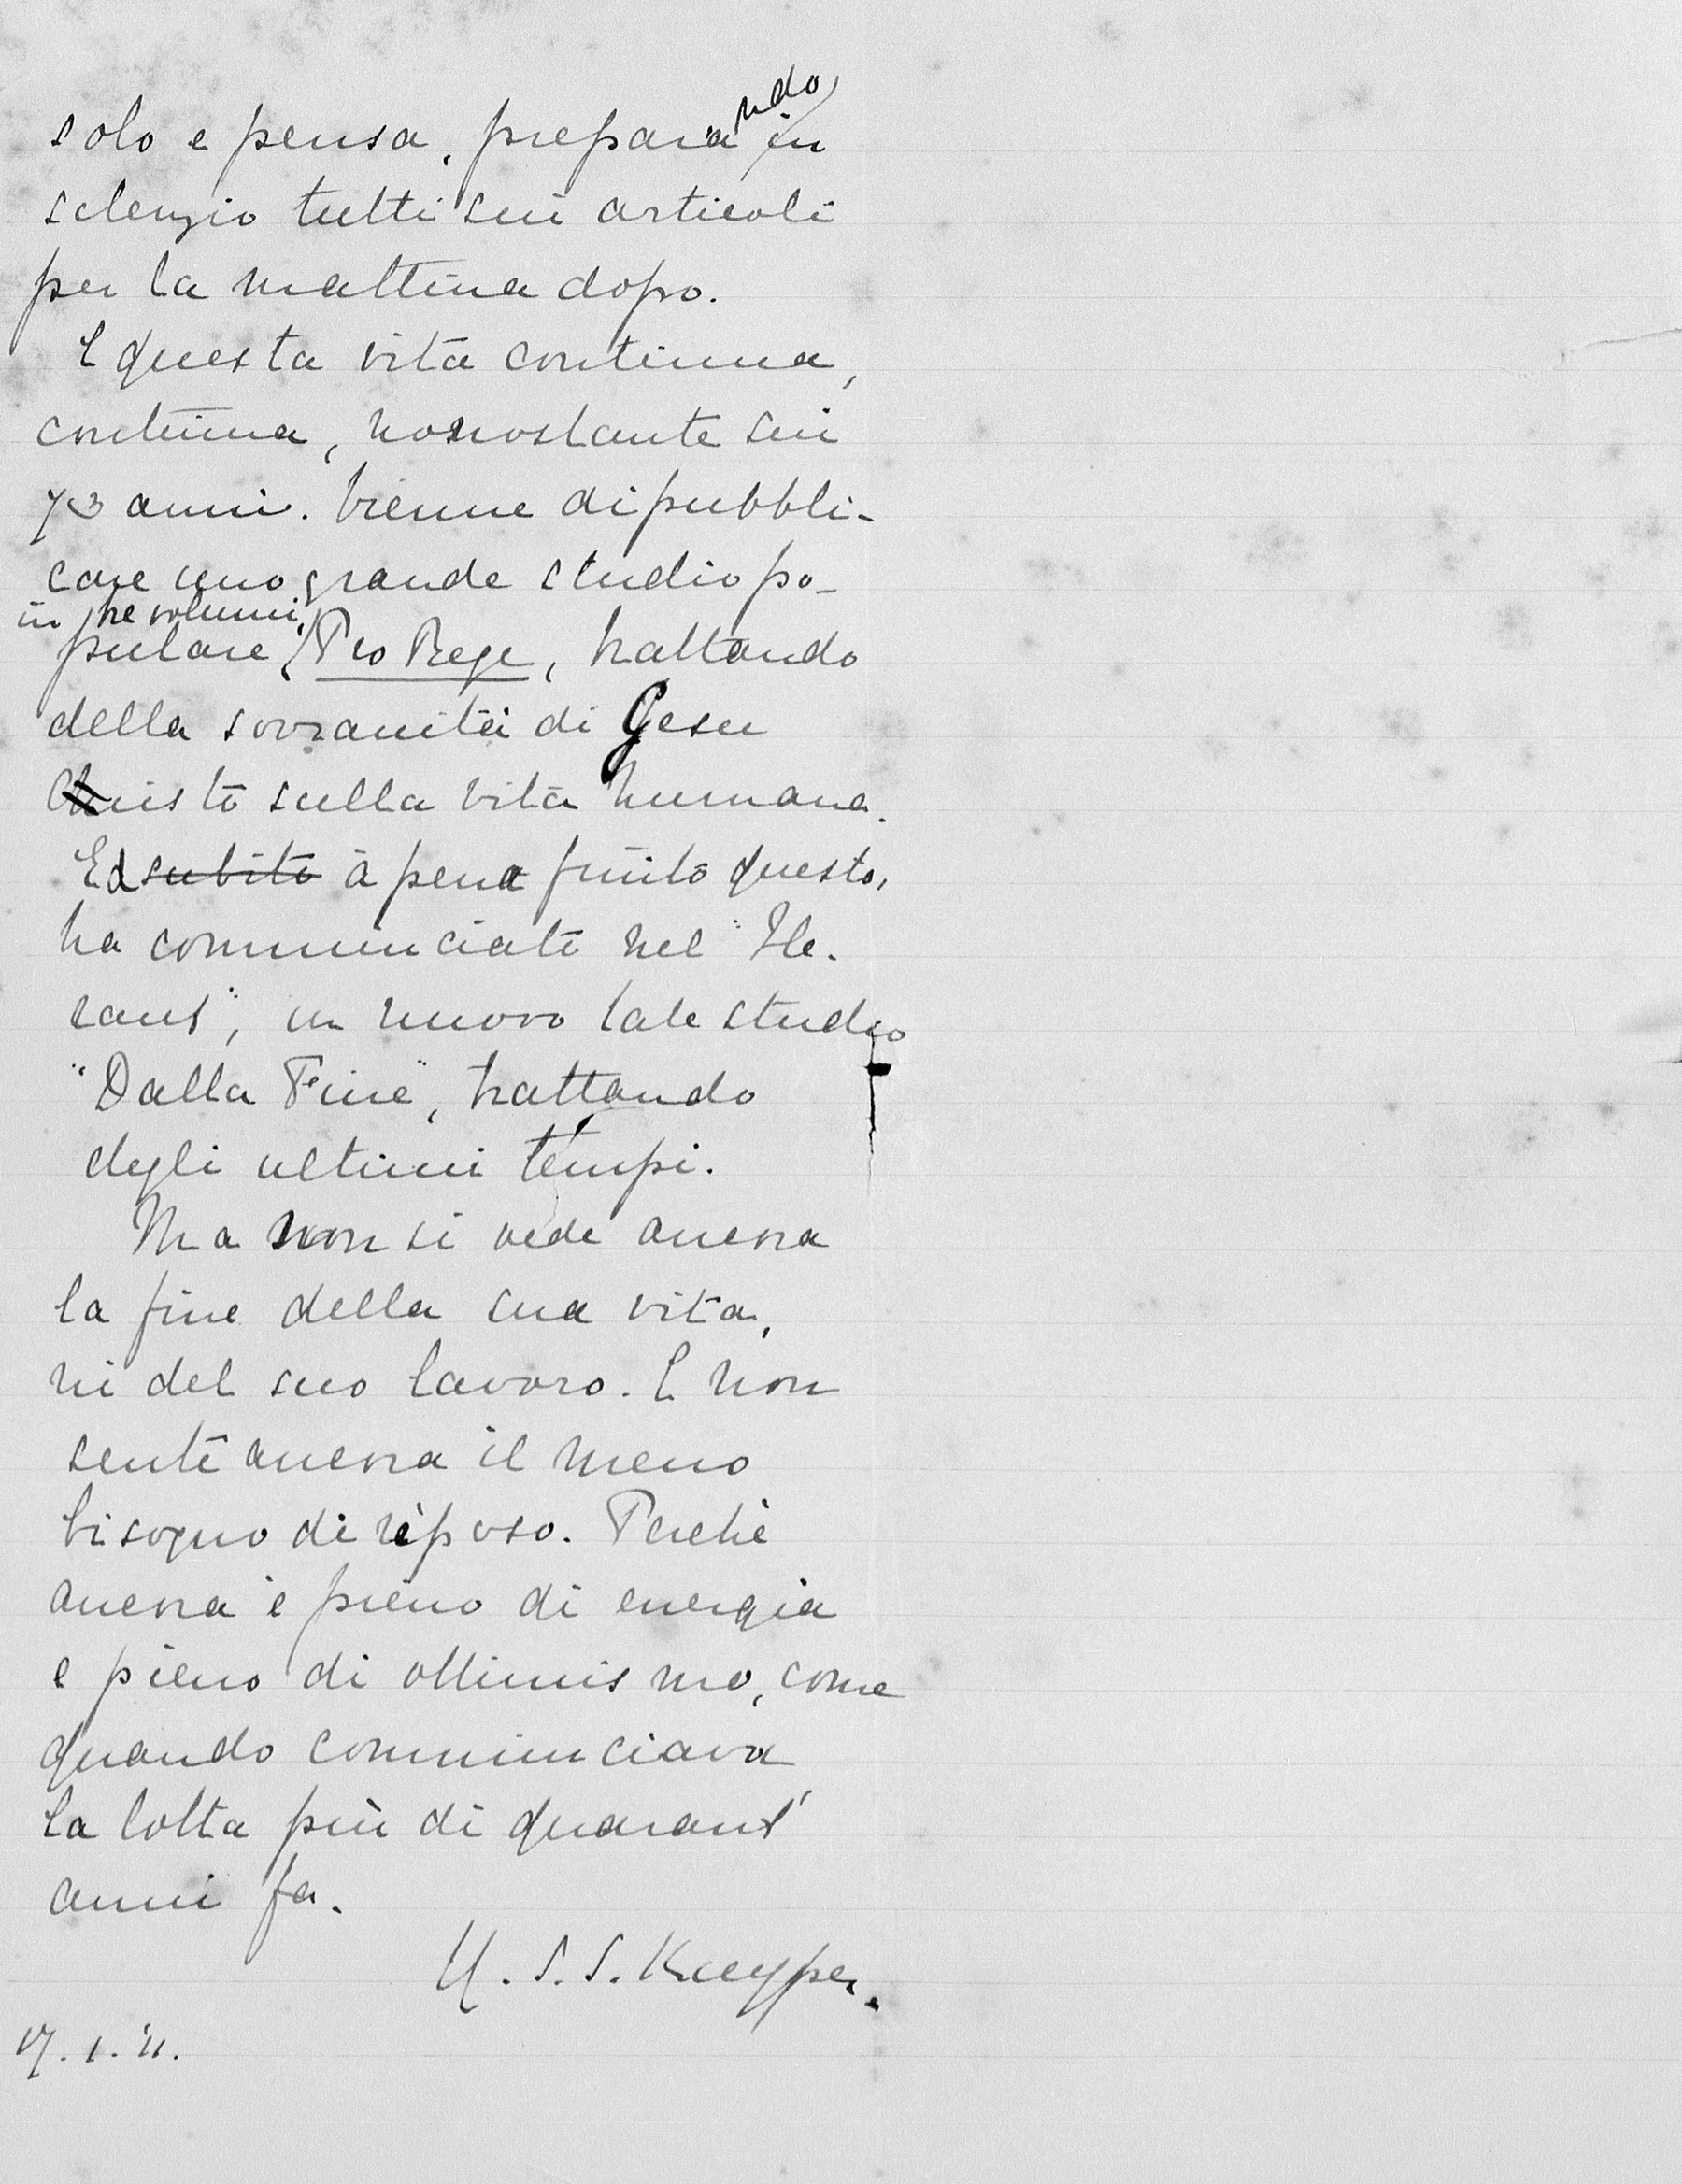 solo e pensa, preparando in
silenzio tutti sui articoli
per la mattina dopo.
E questa vita continua,
continua, nonostante sui
73 anni. Vienne di pubbli-
care uno grande studio po-
pulare, in tre volumi, Pro Rege, trattando
della sovranità di Gesu
Christo sulla vita humana.
Ed subito a pena finito questo,
ha communciato nel "He-
raut", un nuovo tale studio
"Dalla Fine", trattando
degli ultimi tempi.
Ma non si vede ancora
la fine della sua vita,
ni del suo lavoro. E non
sente ancora il meno
bisogno di riposo. Perchè
ancora è pieno di energia
e pieno di ottimismo, come
quando communciava
la lotta più di quarant'
anni fa.
H. S. S. Kuyper.
17.1.'11.